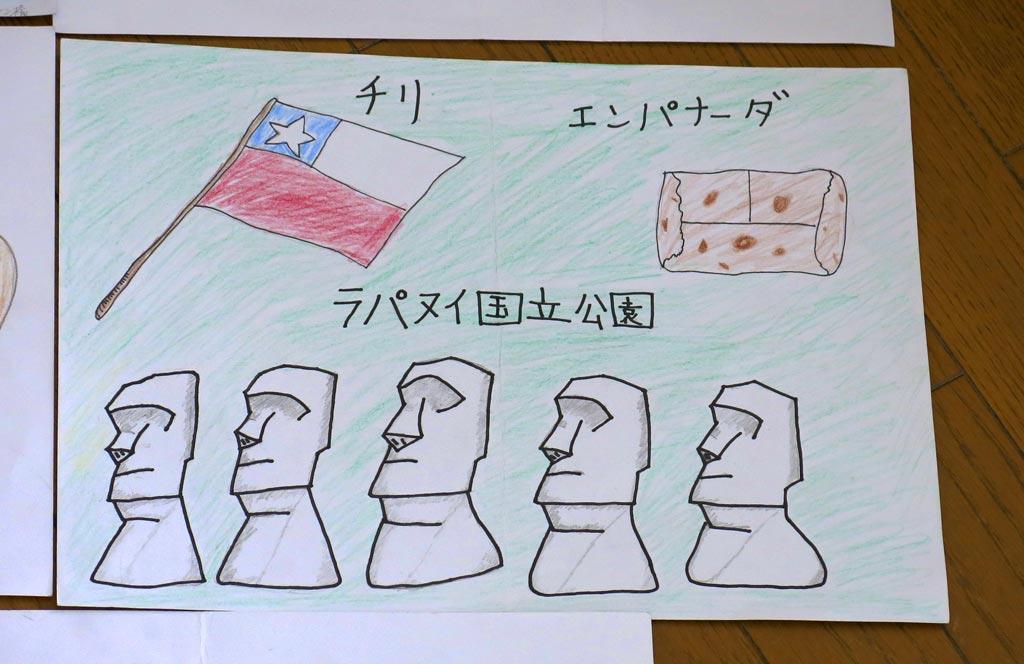 チリ
エンパナーダ
ラパヌイ国立公園